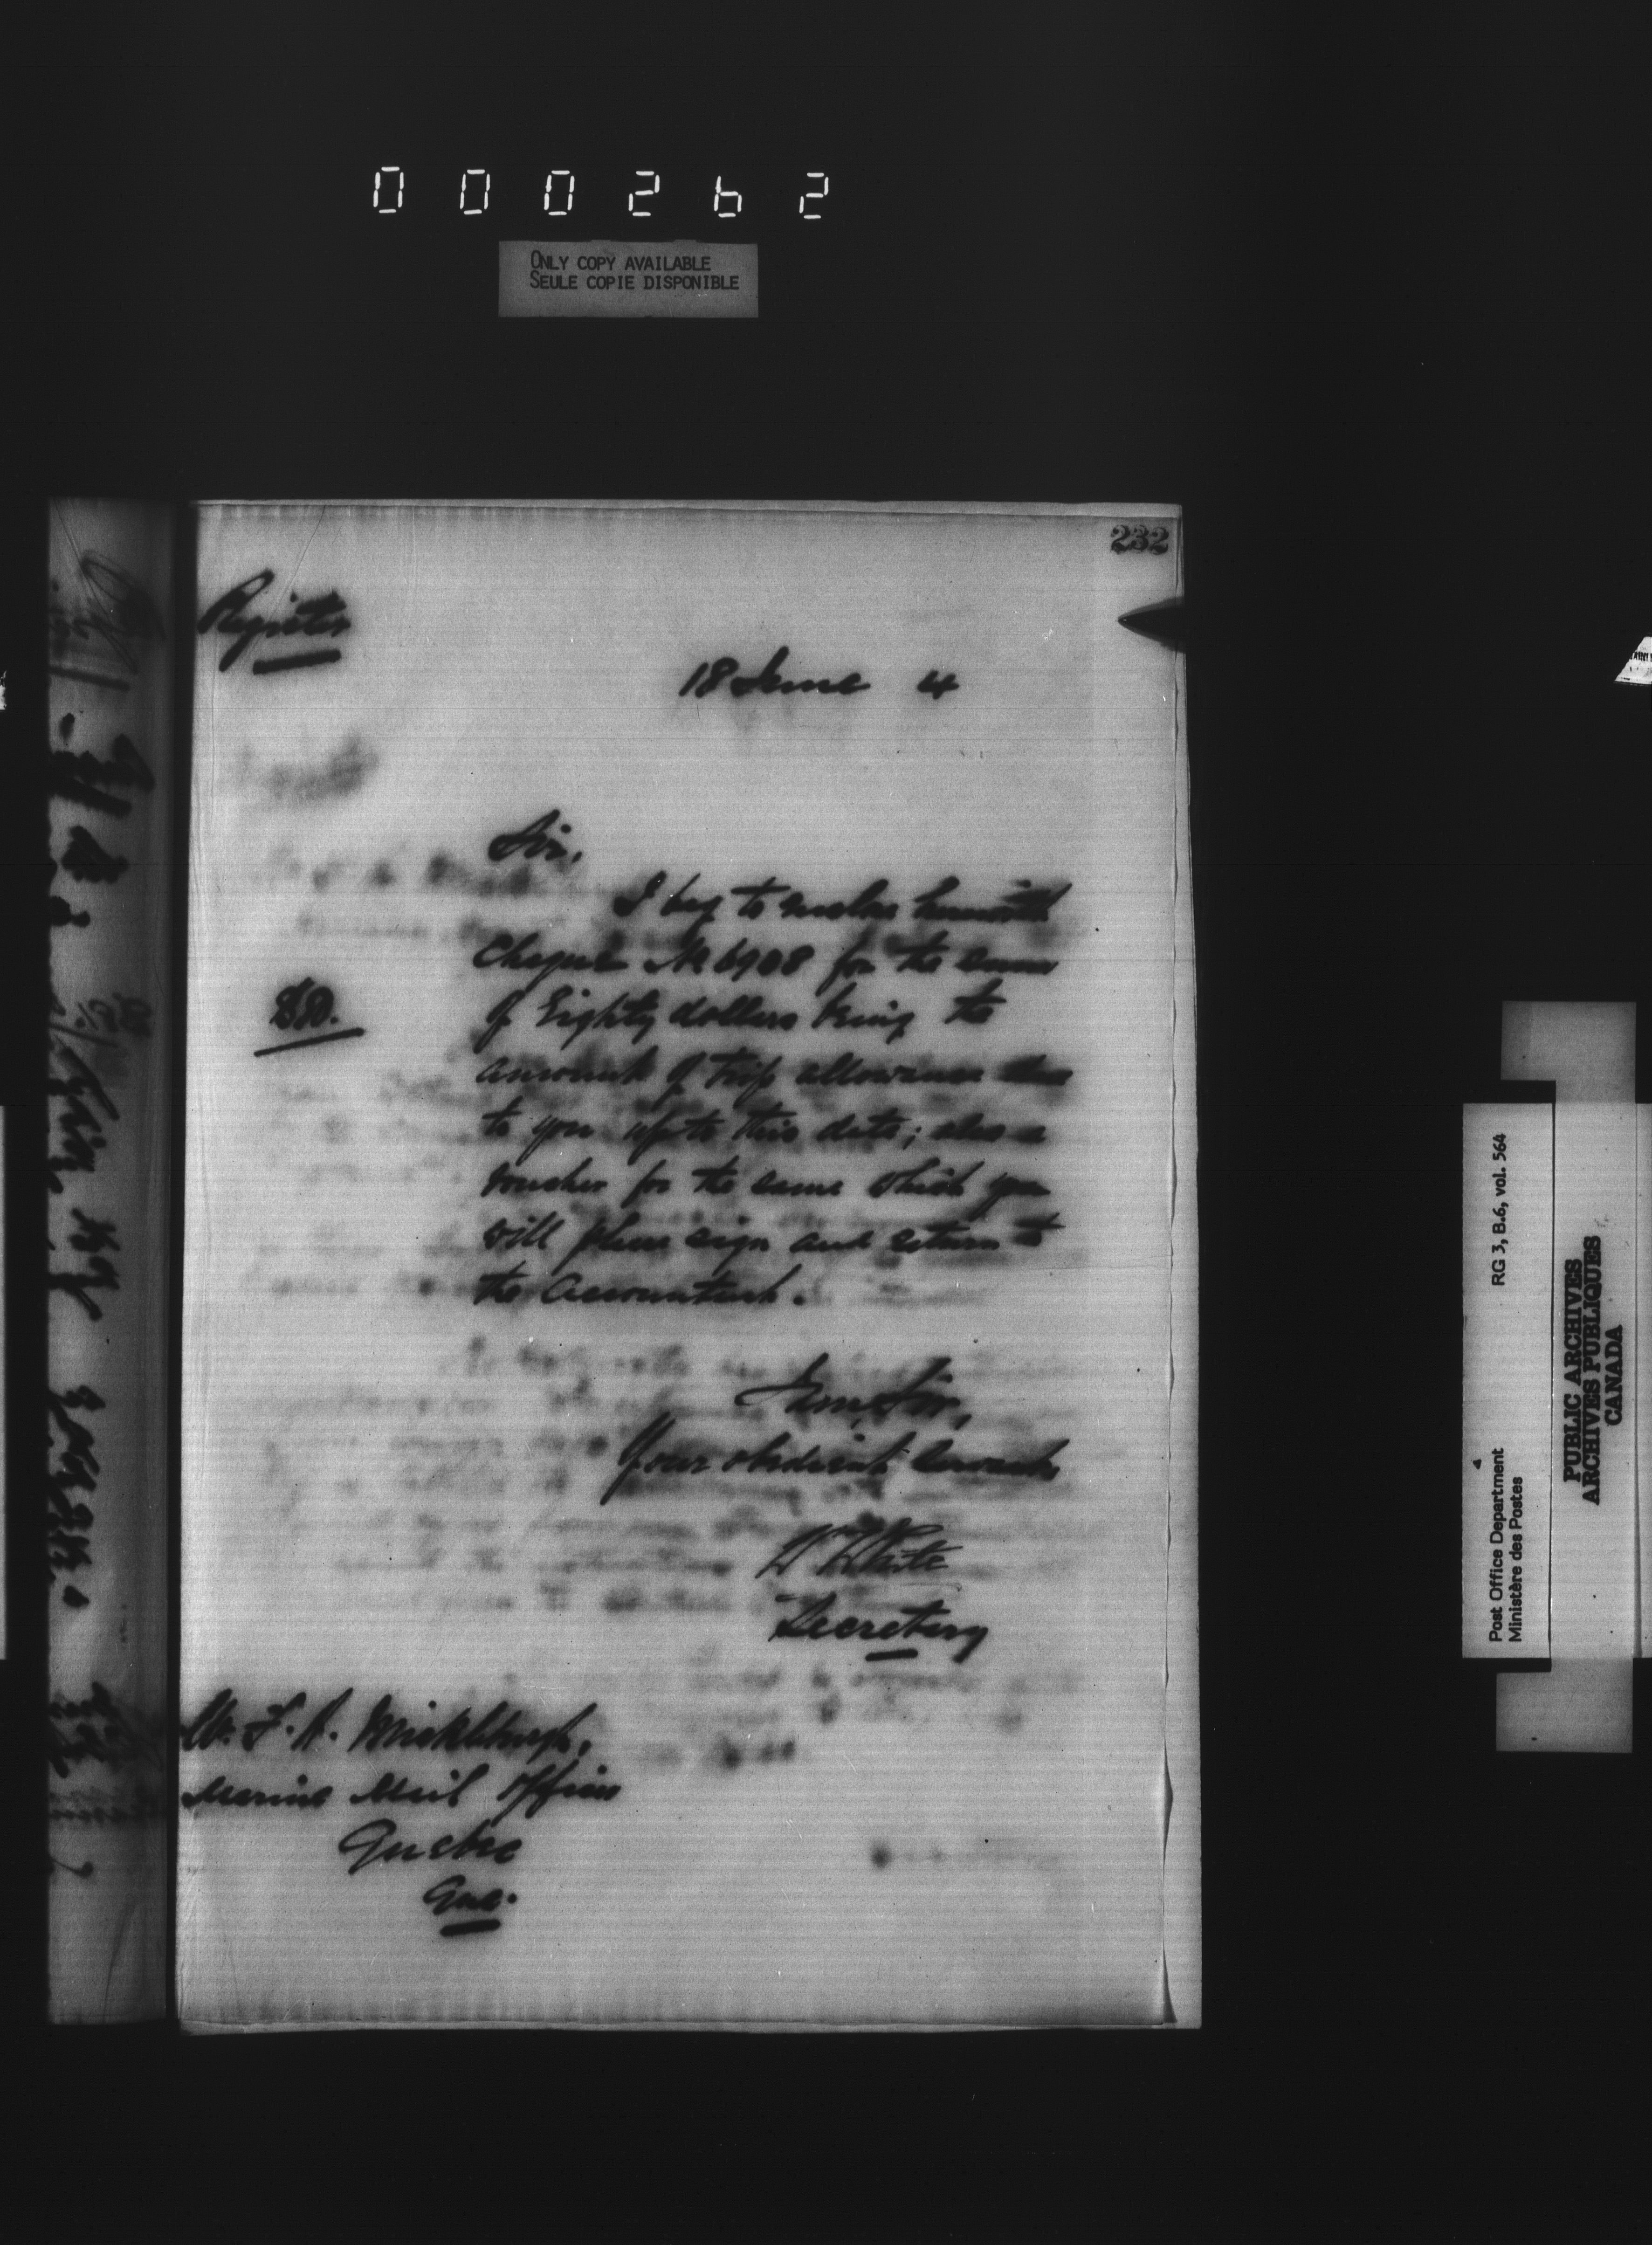 000262
ONLY COPY AVAILABLE
SEULE COPIE DISPONIBLE
232
Register
18 June 4
Sir,
I beg to enclose herewith
Cheque No 6908 for the sum
$80.
of Eighty dollars being the
amount of trip allowance due
to you up to this date; also a
voucher for the same which you
will please sign and return to
the Accountant.
I am, Sir,
Your obedient servant,
W White
Secretary
Mr. F. A. Mickleburgh,
Marine Mail Officer
Quebec
Que.
Post Office Department
Ministère des Postes
RG 3, B.6, vol. 564
PUBLIC ARCHIVES
ARCHIVES PUBLIQUES
CANADA